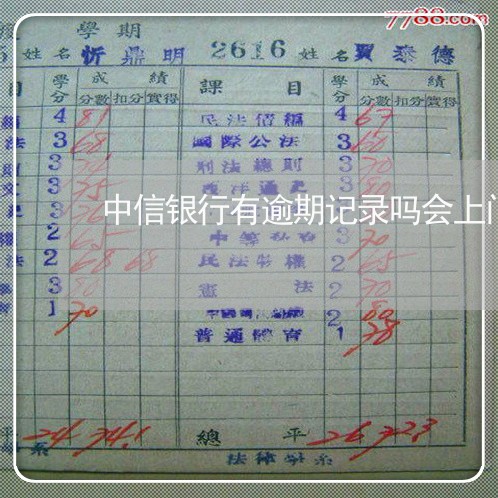 7788.com
學期
姓名 忻鼎明 2616 姓名 賈泰德
目 學分 成績 課目 學分 成績
分數 扣分 實得 分數 扣分 實得
4 81 民法債編 4 67
法 3 68 國際公法 3 60
3 刑法總則 3 70
3 75 3 80
中信银行有逾期记录吗会上门
2 65 3 70
法 2 68 68 民法物權 2 65
3 80 憲法 2 70
1 70 2 80
普通體育 1 78
平 24 74.1 總平 26 72.3
系 法律學系